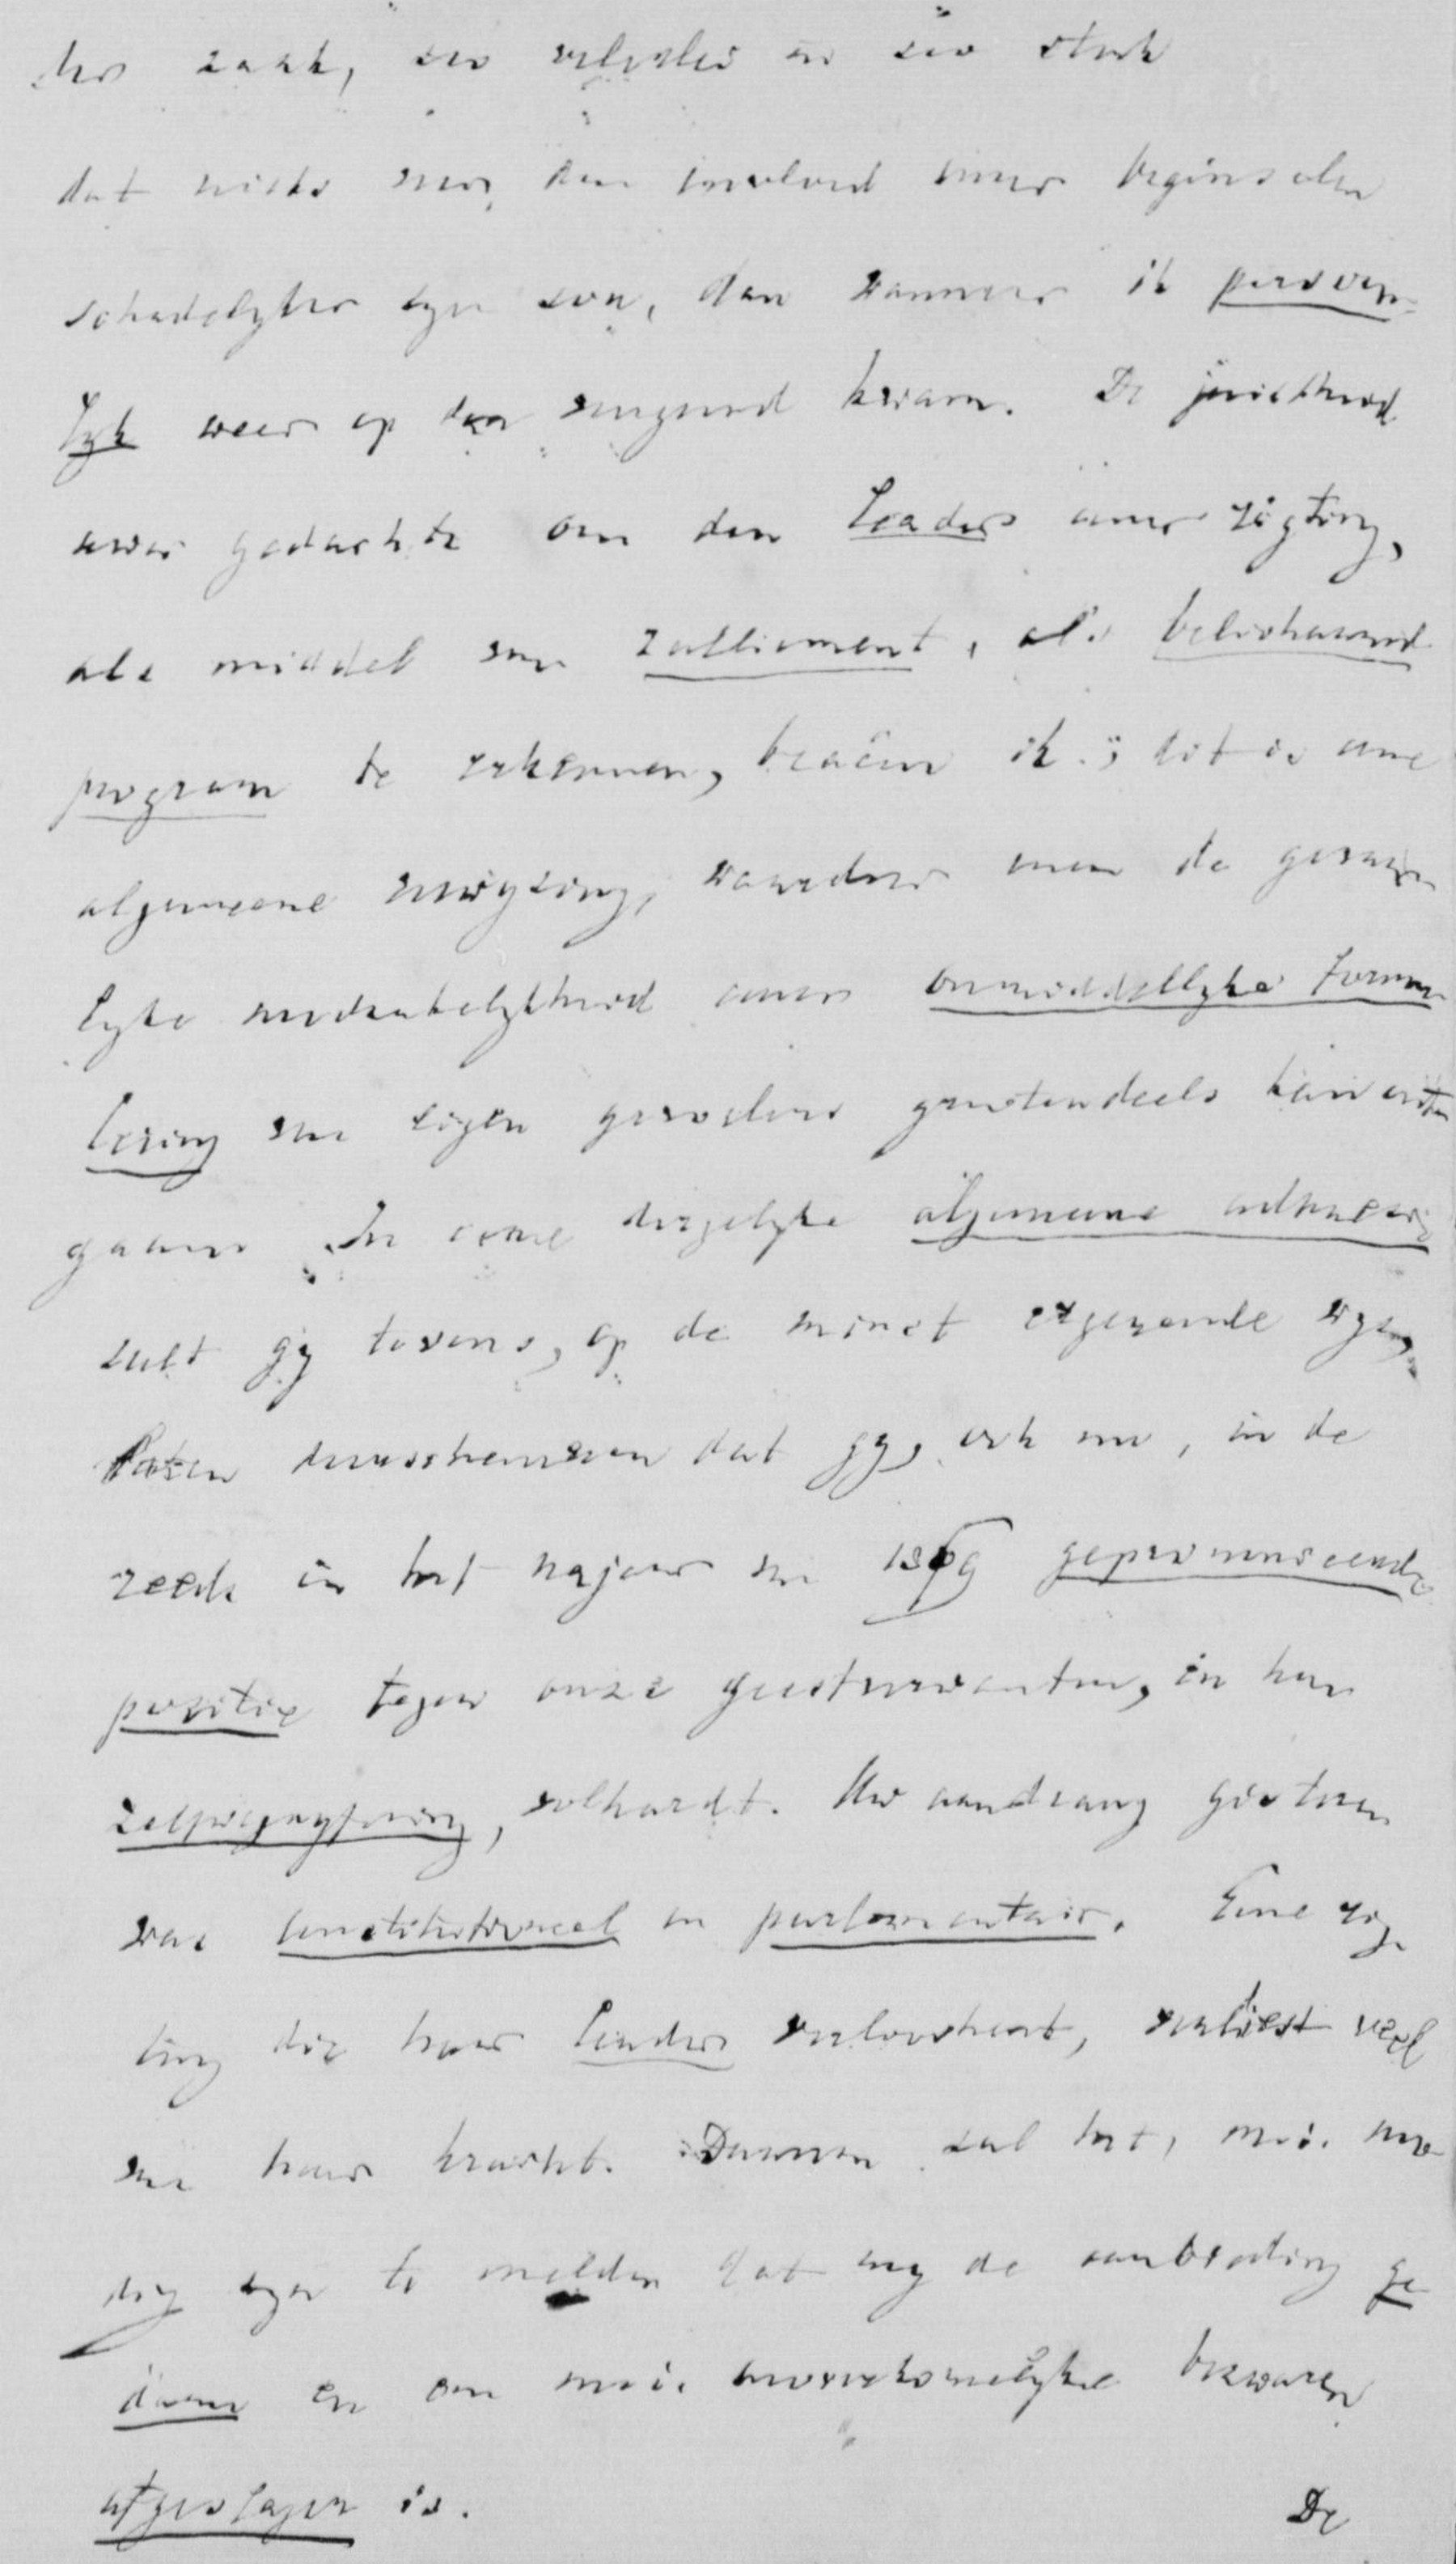 der zaak, een velerlei en zoo sterk
dat niets voor den invloed onzer beginselen
schadelyker zyn zou, dan wanneer ik persoon-
lyk weer op den voorgrond kwam. De juistheid
uwer gedachte om den Leader eener rigting,
als middel van ralliement, als belichaamd
program te erkennen, beaam ik; dit is eene
algemeene aanwyzing, waardoor men de gevaar-
lyke moeielykheid eener onmiddellyke formu-
lering van eigen gevoelens grootendeels kan ont-
gaan. In eene dergelyke algemeene adhaesie
zult gy tevens, op de minst ergerende wyze,
laten doorschemeren dat gy, ook nu, in de
reeds in het najaar van 1869 geprononceerde
positie tegen onze geestverwanten, in hun
zelfwegcyfering, volhardt. Uw aandrang gisteren
was constitutioneel en parlementair. Eene rig-
ting die haar Leader verloochent, verliest veel
van haar kracht. Daarom zal het, m.i. noo-
dig zyn te melden dat my de aanbieding ge-
daan en om m.i. onoverkomelyke bezwaren
afgeslagen is.
De